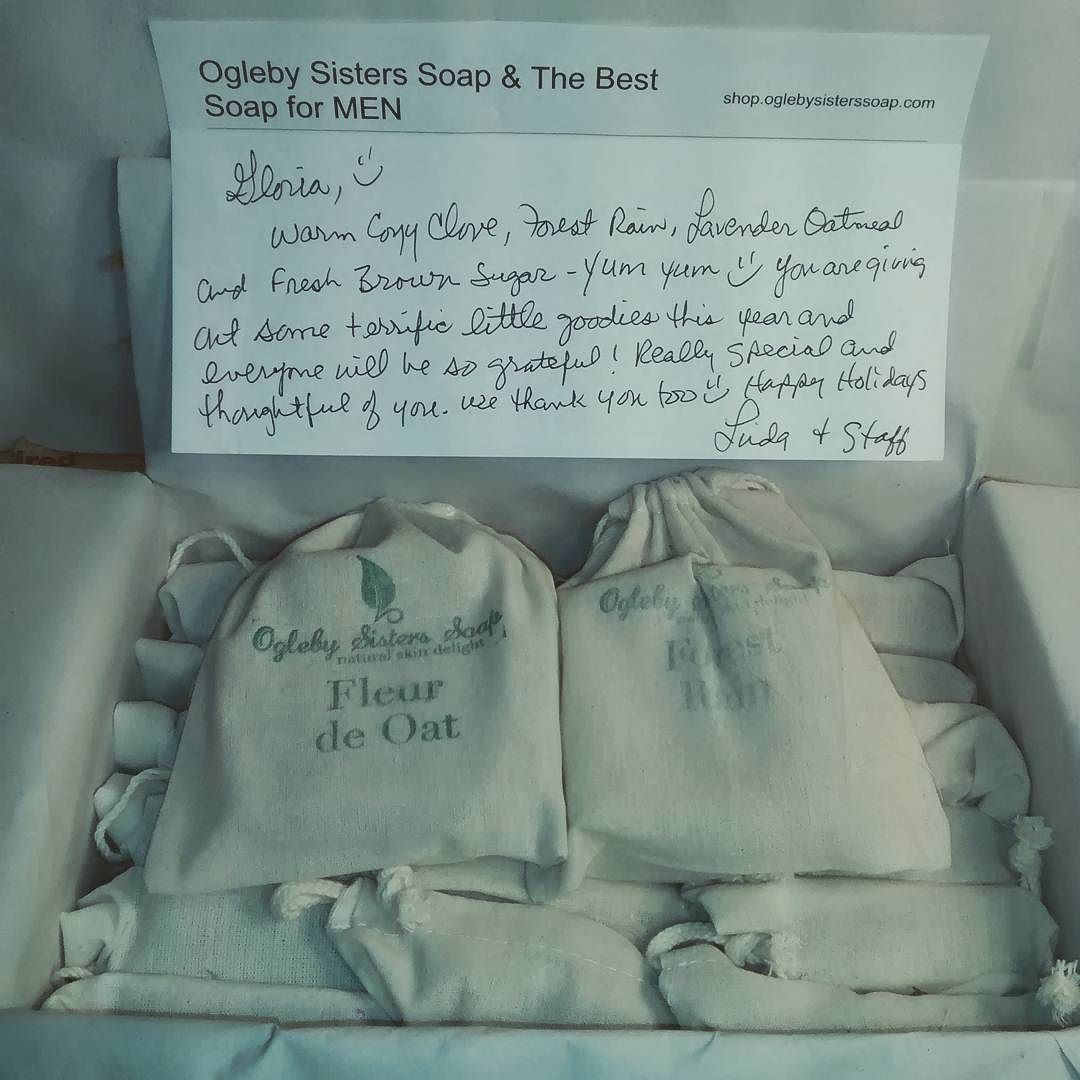 Ogleby Sisters Soap & The Best
Soap for MEN
shop.oglebysisterssoap.com
Gloria,
Warm Cozy Clove, Forest Rain, Lavender Oatmeal
and Fresh Brown Sugar - Yum yum :) You are giving
out some terrific little goodies this year and
everyone will be so grateful! Really special and
thoughtful of you. We thank you too :) Happy Holidays
Linda + Staff
Ogleby Sisters Soap
natural skin delight
Fleur
de Oat
Ogleby Sisters
skin delight
Forest
Rain